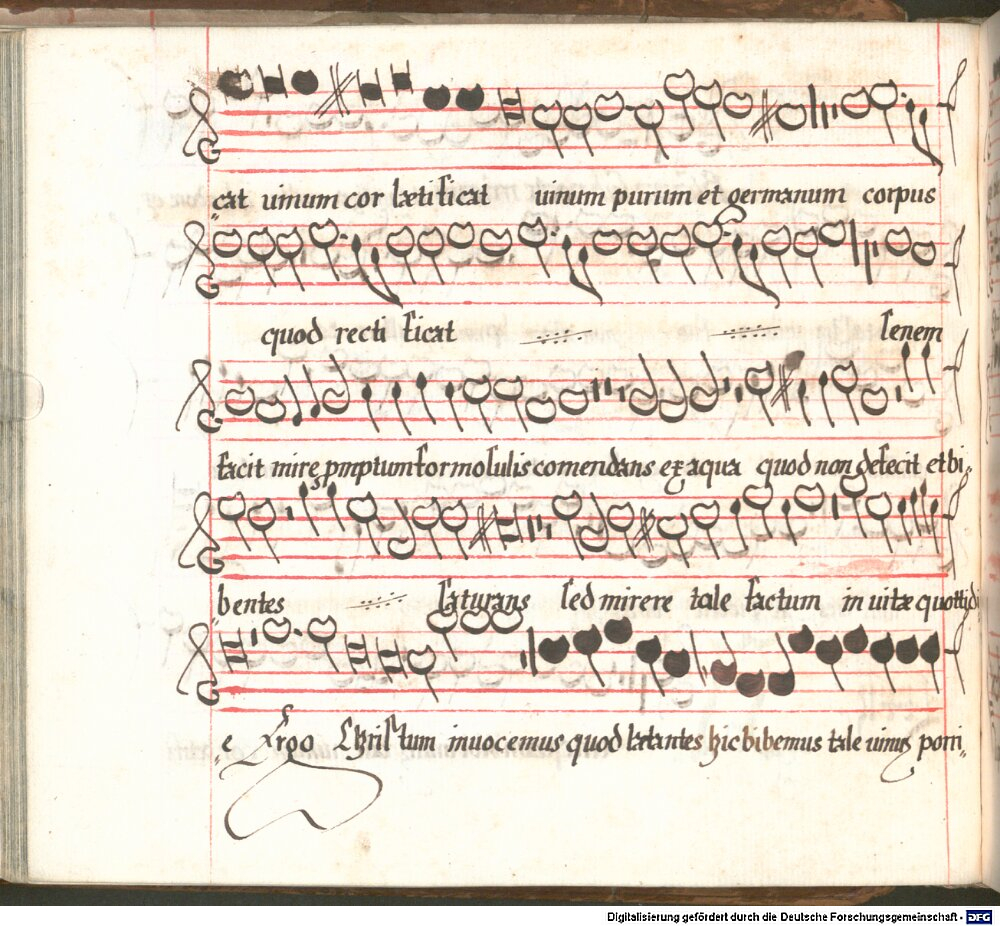 cat uinum cor lætificat uinum purum et germanum corpus
quod recti ficat senem
facit mire promptum formosulis comendans ex aqua quod non defecit et bi„
bentes saturans sed mirere tale factum in uitæ quottidi
e Ergo Christum inuocemus quod lætantes hic bibemus tale uinum porri„
Digitalisierung gefördert durch die Deutsche Forschungsgemeinschaft - DFG